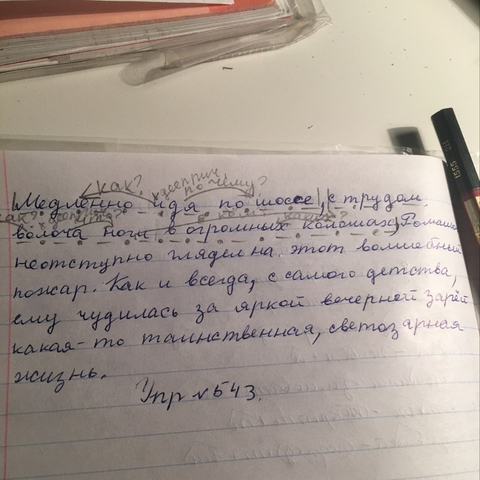 как? дееприч.
по чему?
Медленно идя по шоссе, с трудом,
волоча ноги в огромных колошах, Ромашка
неотступно глядел на этот волшебный
пожар. Как и всегда, с самого детства,
ему чудилась за яркой вечерней зарёй
какая-то таинственная, светозарная
жизнь.
Упр №543.